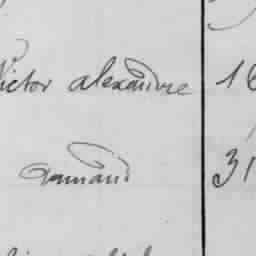 Victor alexandre 16
Armand 31